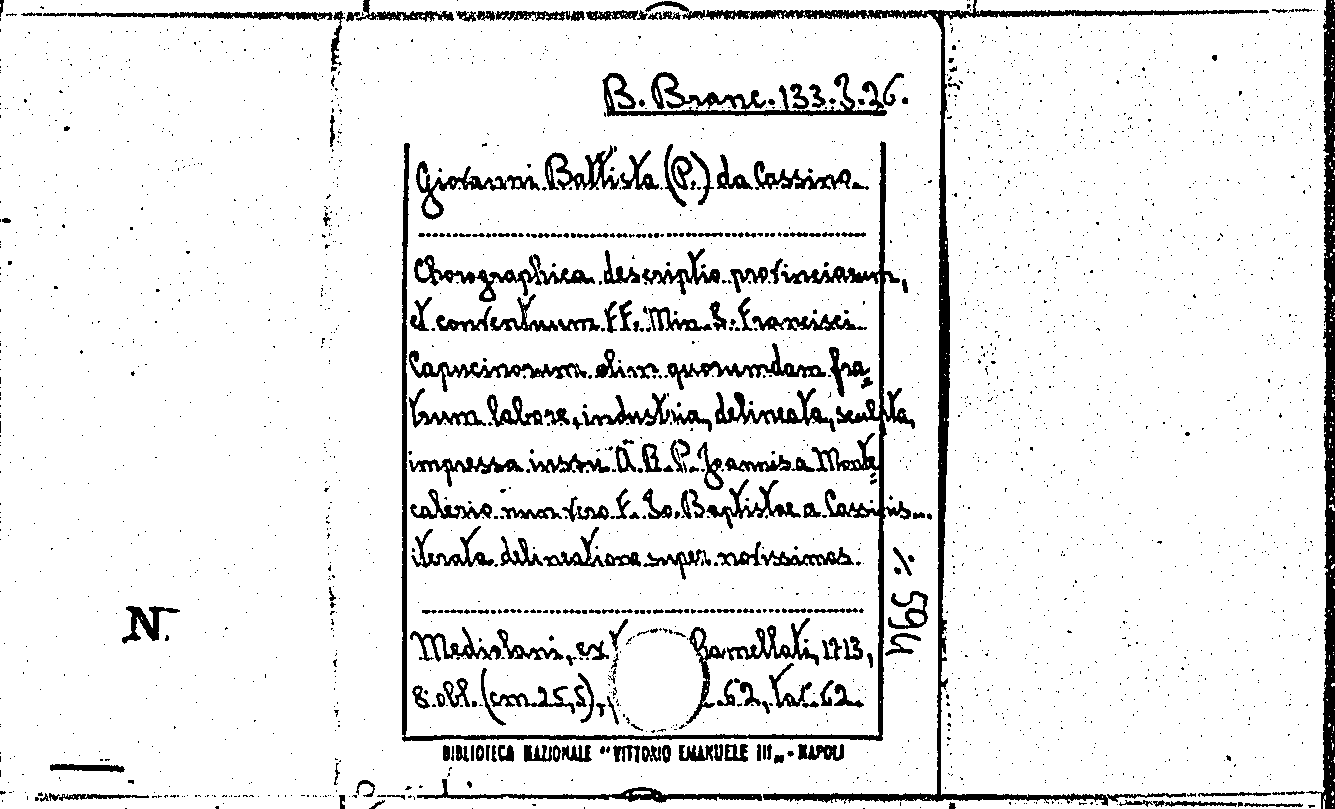 B. Branc. 133. J. 26.
Giovanni Battista (P.) da Cassino.
Chorographica descriptio provinciarum,
et conventuum FF. Min. S. Francisci
Capucinorum olim quorumdam fra=
trum labore, industria, delineata, sculpta,
impressa iussu A. R. P. Joannis a Monte=
calerio nunc vero F. Io. Baptistae a Cassinis...
iterata delineatione super novissimos.
Mediolani, ex Ramellati, 1713,
8. obl. (cm. 25,5), 62, tav. 62.
BIBLIOTECA NAZIONALE "VITTORIO EMANUELE III" - NAPOLI
N.